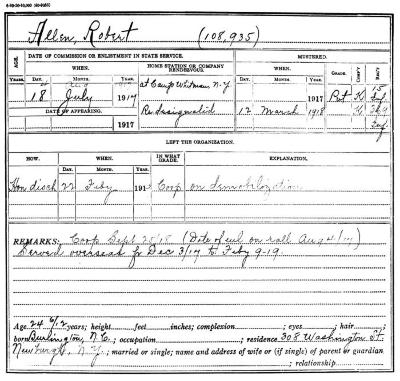 Allen, Robert (108,935)
AGE.
DATE OF COMMISSION OR ENLISTMENT IN STATE SERVICE.
HOME STATION OR COMPANY RENDEZVOUS.
MUSTERED.
YEARS. DAY. MONTH. WHEN. GRADE. COMPY. REGT.
18 July 1917 at Camp Whitman N.Y. 1917 Pvt K 15 Inf
DATE OF APPEARING.
1917 Redesignated 12 March 1918 K 369 Inf
LEFT THE ORGANIZATION.
HOW. WHEN. IN WHAT GRADE. EXPLANATION.
DAY. MONTH.
Hon disch 22 Feby 191 Corp on demobilization
REMARKS: Corp Sept 25/18 (Date of enl on roll Aug 4/17)
Served overseas fr Dec 3/17 to Feby 9-19.
Age 24 6/12 years; height feet inches; complexion ; eyes ; hair ;
born Burlington, N.C. ; occupation ; residence 308 Washington St.
Newburgh, N.Y.; married or single; name and address of wife or (if single) of parent or guardian
; relationship